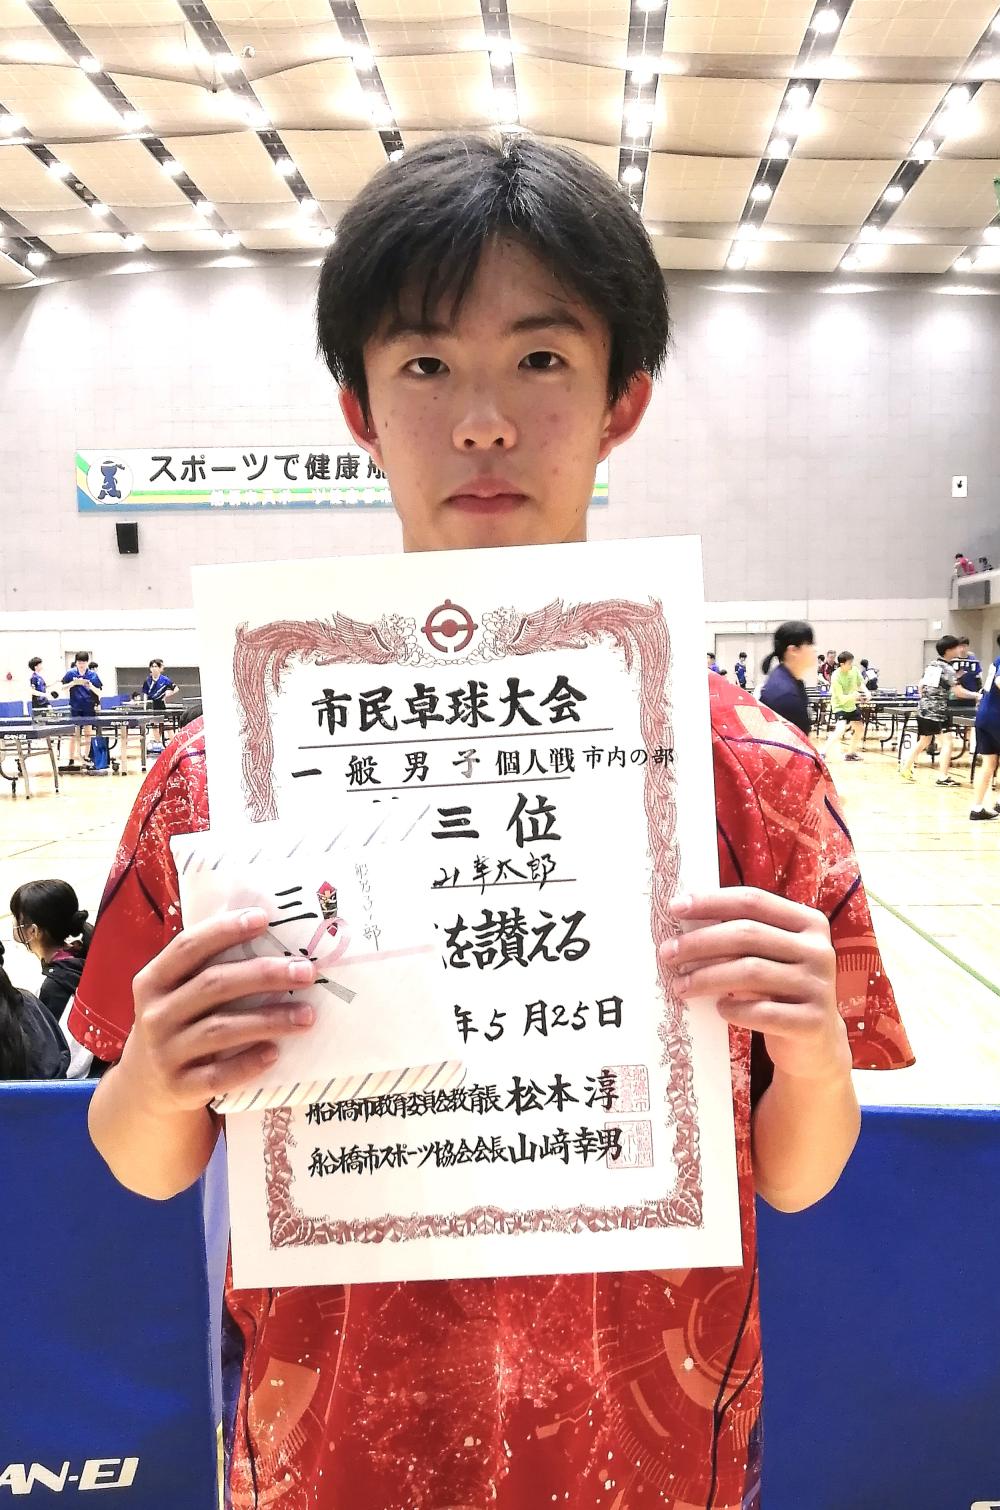 スポーツで健康船
市民卓球大会
一般男子個人戦市内の部
三位
幸太郎
を讃える
年5月25日
船橋市教育委員会教育長松本淳
船橋市スポーツ協会会長山﨑幸男
三
AN-EI